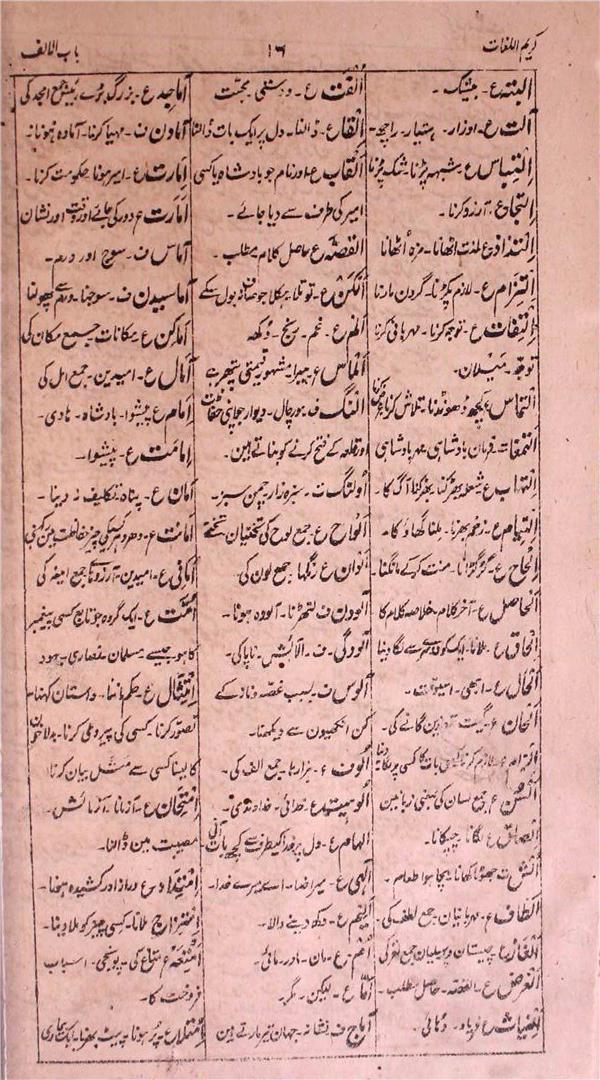 کریم اللغات
۱۶
باب الالف
البتہ ع - بیشک -
آلت ع - اوزار - ہتیار - راچھ -
التباس ع - شبہہ پڑنا شک پڑنا
التجا ع - آرزو کرنا -
التذاذ ع - لذت اٹھانا - مزہ اٹھانا
التزام ع - لازم پکڑنا - گردن مارنا
التفات ع - توجہ کرنا - مہربانی کرنا
توجہ - میلان -
التماس ع - کچھ ڈھونڈنا - تلاش کرنا
التمغات - فرمان بادشاہی - مہر بادشاہی
التہاب ع - شعلہ بھڑکنا بھڑکنا آگ کا -
التیام ع - زخم بھرنا - ملنا گھاؤ کا -
الحاح ع - گڑگڑانا - منت کرکے مانگنا -
الحاصل ع - آخر کلام - خلاصہ کلام کا
الحاق ع - ملانا - ایک کو دوسرے سے لگا دینا
الحال ع - ابھی - اسیوقت -
الحان ع - گیت گانے کی -
السن ع - جمع لسان کی یعنی زبانین
لگانا - چپکانا -
الش ت جھوٹا کھانا - بچا ہوا طعام -
الطاف ع - مہربانیان - جمع لطف کی -
الغاز ع - چیستان و پہیلیان جمع لغز کی
الغرض ع - القصہ - حاصل مطلب -
دُہائی -
الفت ع - دوستی محبت
القا ع - ڈالنا - دل پر ایک بات ڈالنا
القاب ع - اور نام جو بادشاہ یا کسی
امیر کی طرف سے دیا جائے -
القصہ ع حاصل کلام - مطلب -
الکن ع - توتلا - ہکلا جو صاف نہ بول سکے
الم ع - غم - رنج - دکھہ
الماس ع - ہیرا - مشہور قیمتی پتھر ہے
النگ ف - مورچال - دیوار جو اپنی حفاظت
اور قلعہ کے فتح کرنے کو بناتے ہین -
اولنگ ت - سبزہ زار - چمن سبز -
الواح ع - جمع لوح کی تختیان تختے
الوان ع - رنگہا جمع لون کی
آلودن ف - لتھڑنا - آلودہ ہونا -
آلودگی - ف - آلائش - ناپاکی -
آلوس ف - بسبب غصہ و ناز کے
کن انکھیون سے دیکھنا -
الوف ع - ہزارہا - جمع الف کی -
الوہیت ع - خدائی - خداوندی -
الہام ع - دل پر خدا کیطرف سے کچھہ بات آنی
الٰہی ع - میرا خدا - اے میرے خدا -
الیم ع - دکھہ دینے والا -
اُم - ع - مان - مادر - مائی -
اما ع - لیکن - مگر -
آماج ف نشانہ - جہان تیر مارتے ہین
اماجد ع - بزرگ - بڑے - جمع امجد کی
آمادن ف - مہیا کرنا - آمادہ ہونا -
امارت ع - امیر ہونا - حکومت کرنا -
امارت ع - اور نشان
آماس ف - سوج اور ورم -
آماسیدن ف - سوجنا - ورم سے پھولنا
اماکن ع - مکانات - جمع مکان کی
آمال ع - امیدین - جمع امل کی
امام ع - پیشوا - بادشاہ - ہادی -
امامت ع - پیشوا -
امان ع - پناہ - تکلیف نہ دینا -
امانت ع - دھروہر کسی کی چیز حفاظت مین رکھنی
امانی ع - امیدین - آرزوئے جمع امنیہ کی
امت ع - ایک گروہ جو تابع کسی پیغمبر
کا ہو جیسے مسلمان - نصاریٰ - یہود
امتثال ع - حکم ماننا - داستان کہنا
تصور کرنا - کسی کی پیروی کرنا - بدلا خون
کا لینا کسی سے مثل بیان کرنا
امتحان ع - آزمانا - آزمائش -
مصیبت مین ڈالنا -
امتداد ع دراز اور کشیدہ ہونا -
امتزاج ع ملانا - کسی چیز کو ملا دینا -
امتعہ ع متاع کی - پونجی - اسباب
فروخت کا -
امتلا ع - پُر ہونا - پیٹ بھرنا - ایک بیماری